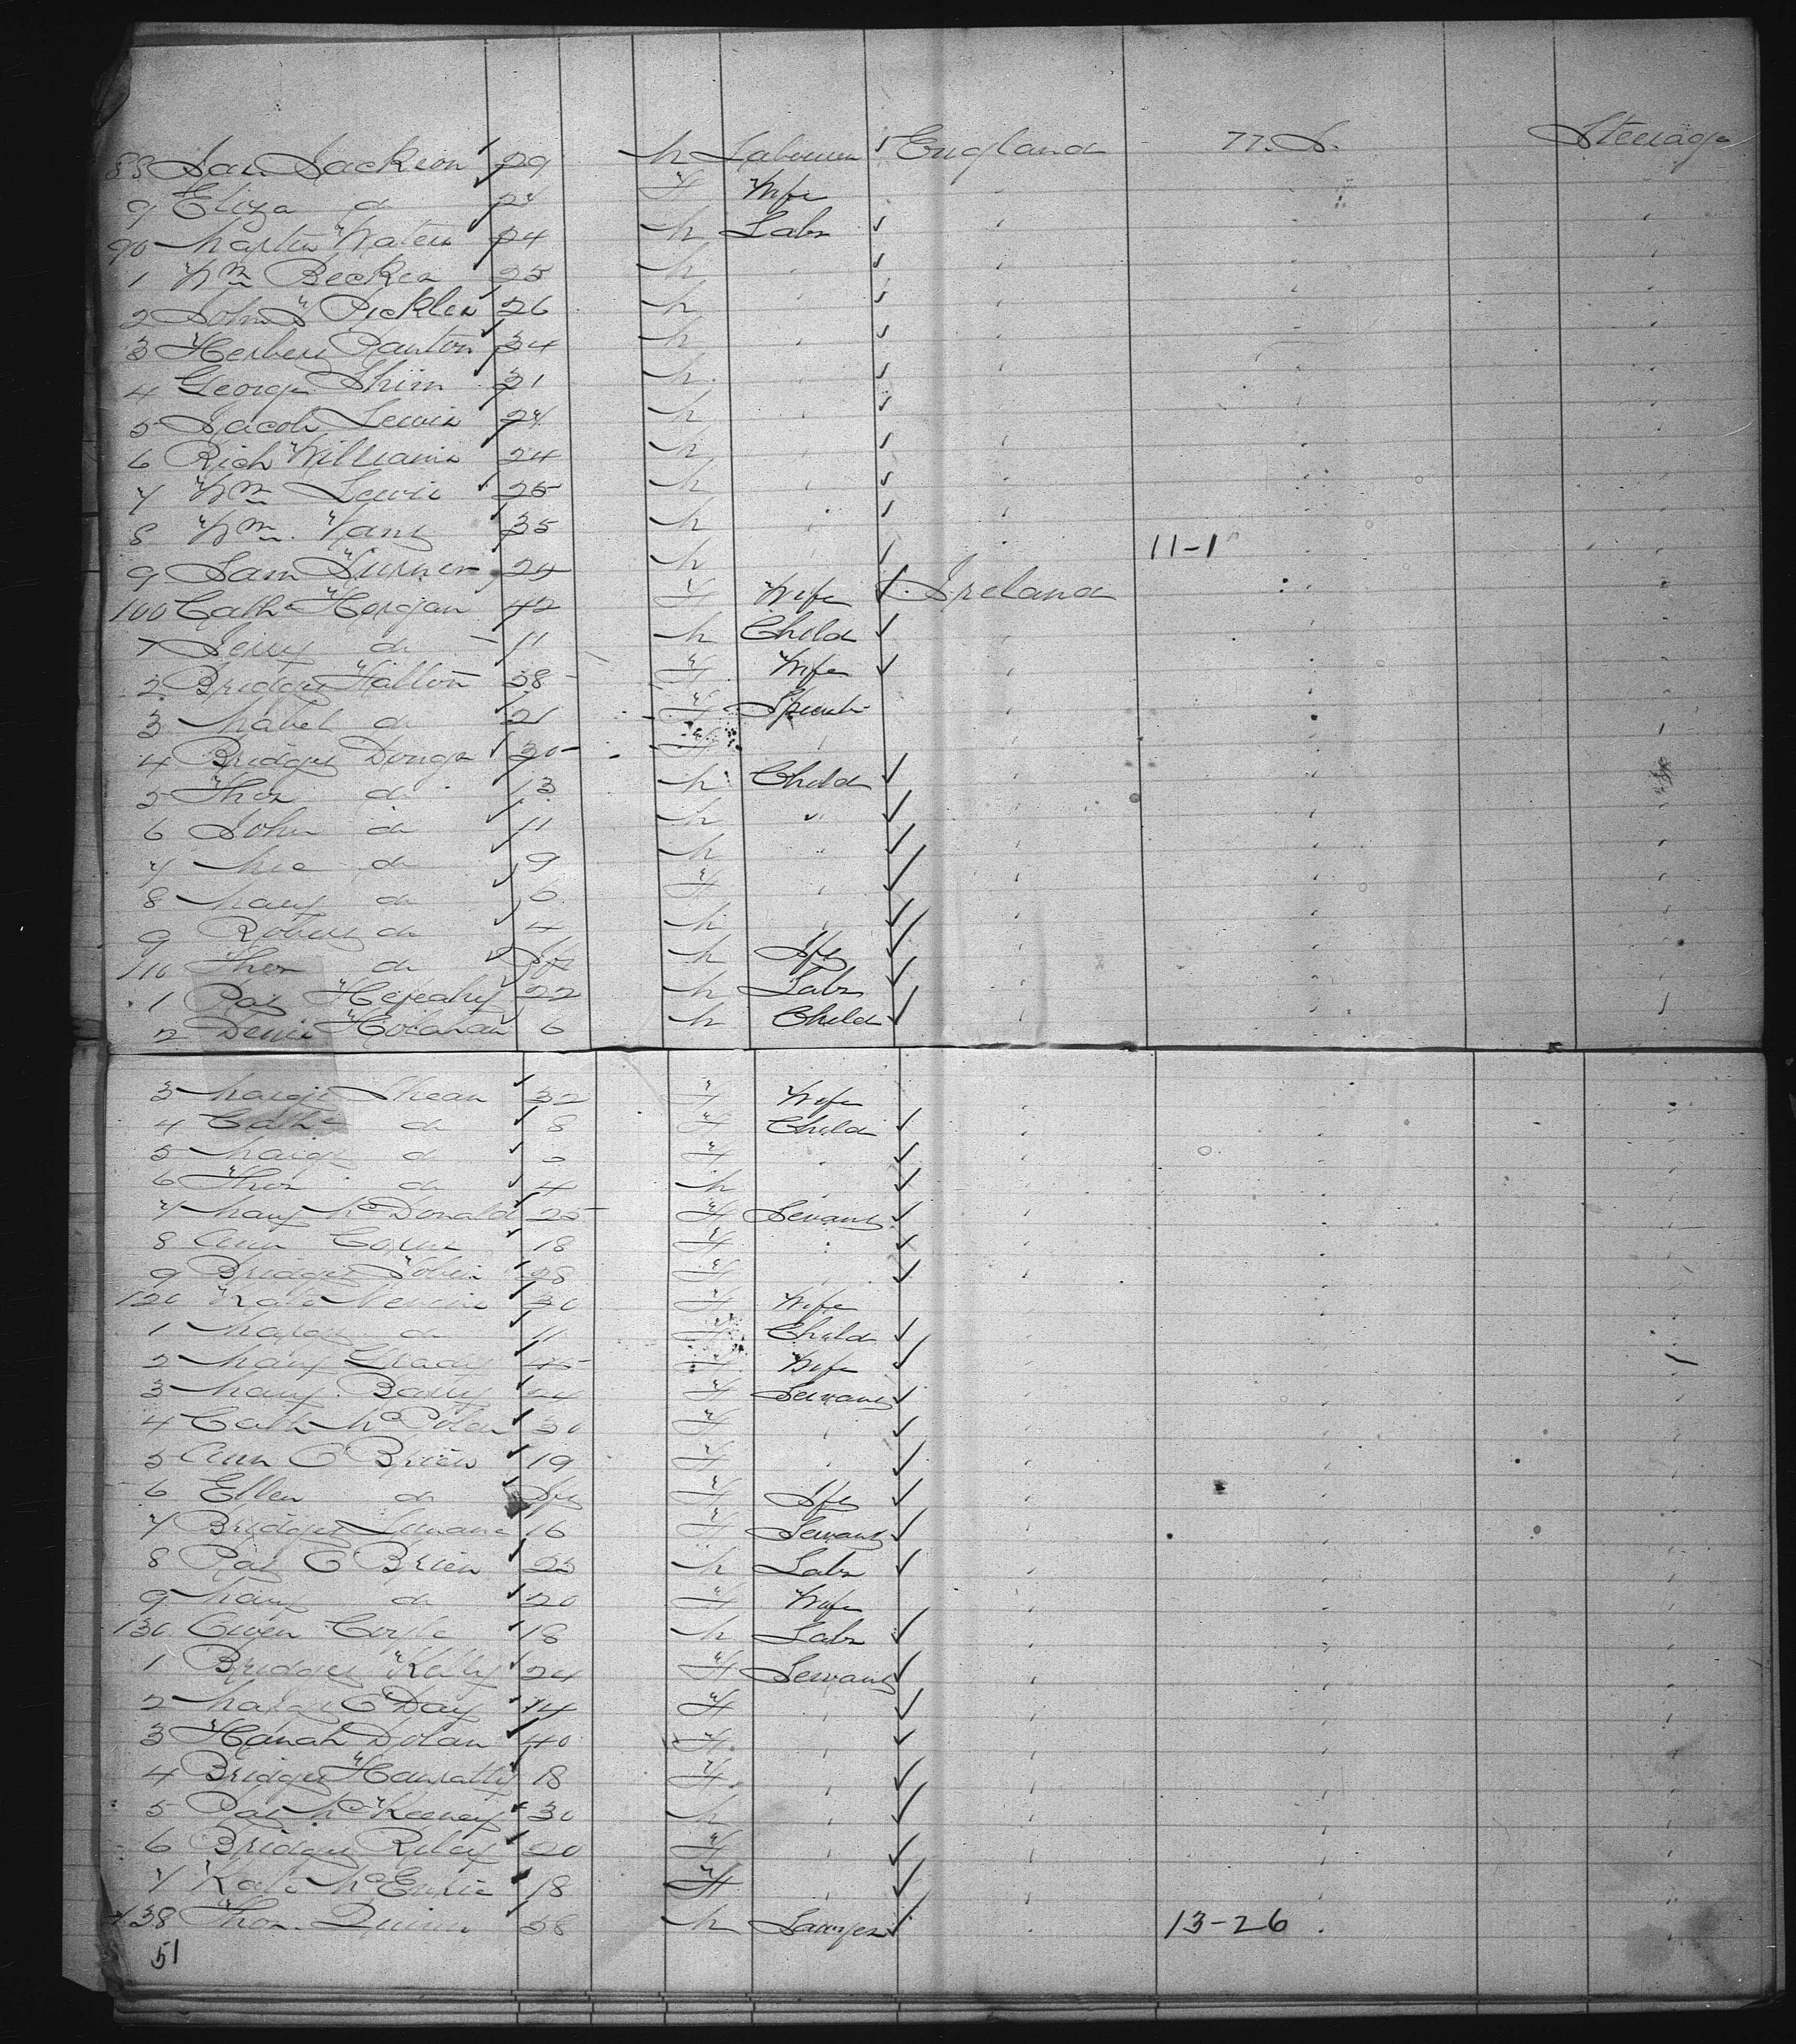 88 Jas. Jackson 29 M Labourer England U.S. Steerage
9 Eliza do 24 F Wife
90 Martin Waters 24 M Labr
1 Wm Becker 25 M "
2 John Pickles 26 M
3 Herbert Panton 34 M "
4 George Shim 21 M "
5 Jacob Lewis 24 M "
6 Rich Williams 24 M "
7 Wm Lewis 25 M "
8 Wm. 35 M "
9 Sam Turner 24 M " 11-1
100 Cath Horgan 42 F Wife Ireland
1 Jerry do 11 M Child
2 Bridget Hallon 38 F Wife
3 Mabel do 21 F
4 Bridget 30 F "
5 Thos do 13 M Child
6 John do 11 M "
7 Mic do 9 M "
8 Mary do 6 F "
9 Robert do 4 M "
110 Thos do M
1 Pat 22 M Labr
2 Denis Holahan 6 M Child
3 Margt Shean 32 F Wife
4 Cath do 8 F Child
5 Margt do F "
6 Thos do 4 M
7 Mary McDonald 25 F Servant
8 Ann 18 F "
9 Bridget Tobin 28 F "
120 Kate 30 F Wife
1 Margt do 11 F Child
2 Mary Grady 45 F Wife
3 Mary 24 F Servant
4 Cath 30 F "
5 Ann O'Brien 19 F "
6 Ellen do F
7 Bridget 16 F Servant
8 Pat O'Brien 23 M Labr
9 Mary do 20 F Wife
130 Owen Coyle 18 M Labr
1 Bridget Kelly 24 F Servant
2 Margt O'Day 14 F "
3 Hanah Dolan 40 F "
4 Bridget Hanratty 18 F "
5 Pat McKeeney 30 M "
6 Bridget Riley 20 F "
7 Kate McEntee 18 F "
138 Thos. Quinn 58 M Lawyer 13-26
51